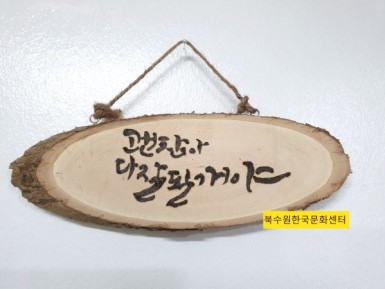 괜찮아
다 잘될거야
북수원한국문화센터